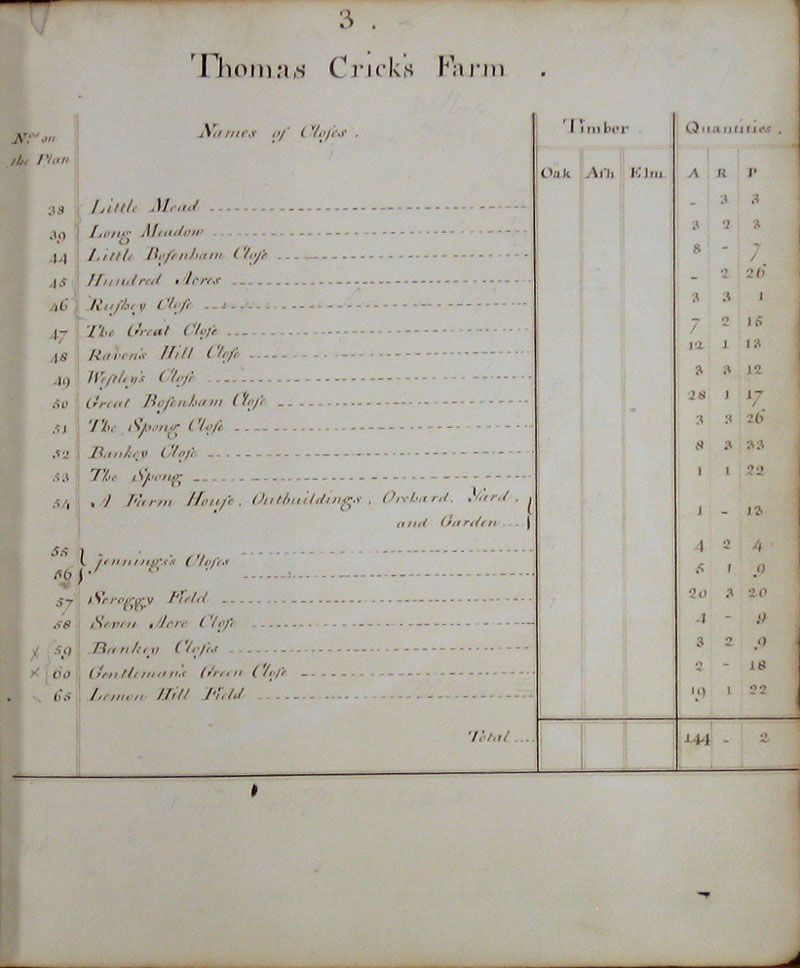 3 .
Thomas Crick's Farm .
N.os on the Plan Names of Closes . Timber . Quantities .
Oak Ash Elm A R P
38 Little Mead - 3 3
39 Long Meadow 3 2 3
44 Little Bosenham Close 8 - 7
45 Hundred Acres - 2 26
46 Rushey Close 3 3 1
47 The Great Close 7 2 15
48 Raven's Hill Close 12 1 13
49 Westley's Close 3 3 12
50 Great Bosenham Close 28 1 17
51 The Spong Close 3 3 26
52 Bankey Close 8 3 33
53 The Spong 1 1 22
54 A Farm House . Outbuildings . Orchard . Yard .
and Garden 1 - 13
55 } Jennings's Closes 4 2 4
56 } 5 1 9
57 Scroggy Field 20 3 20
58 Seven Acre Close 4 - 9
x 59 Bankey Closes 3 2 9
x 60 Gentleman's Green Close 2 - 18
65 Lemon Hill Field 19 1 22
Total .... 144 - 2